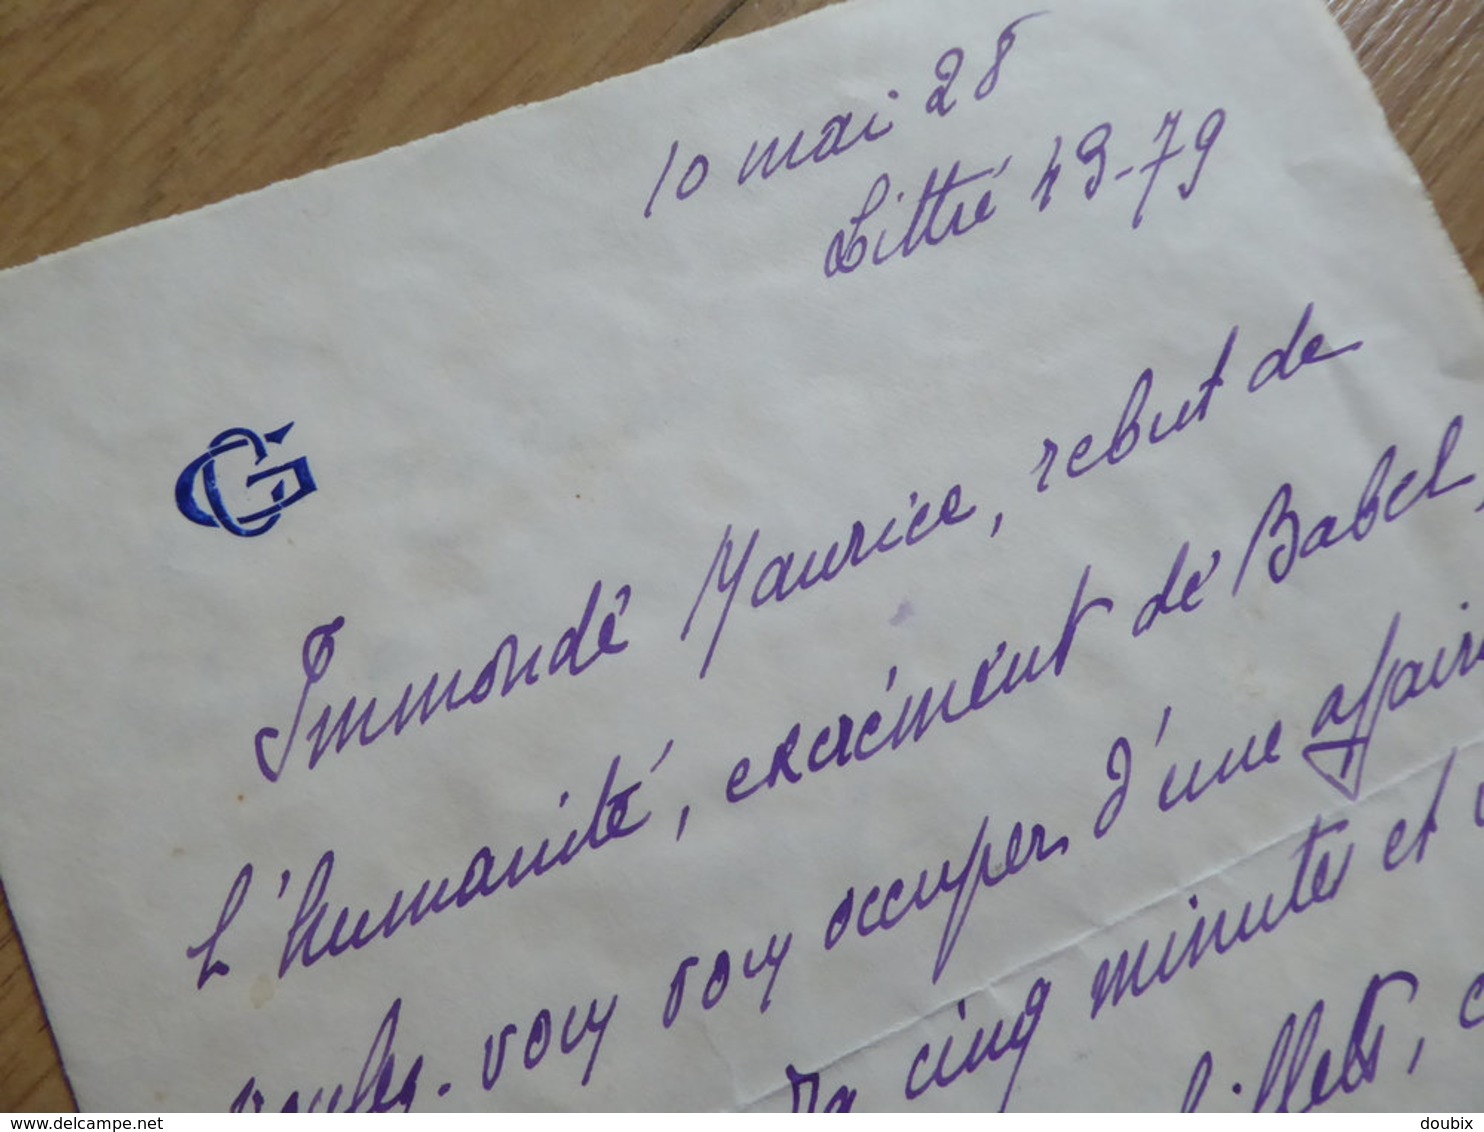 10 mai 28
Littré 49-79
CG
Immonde Maurice, rebut de
l'humanité, excrément de Babel,
voulez-vous vous occuper d'une affaire
cinq minutes et
billets,
www.delcampe.net
doubix